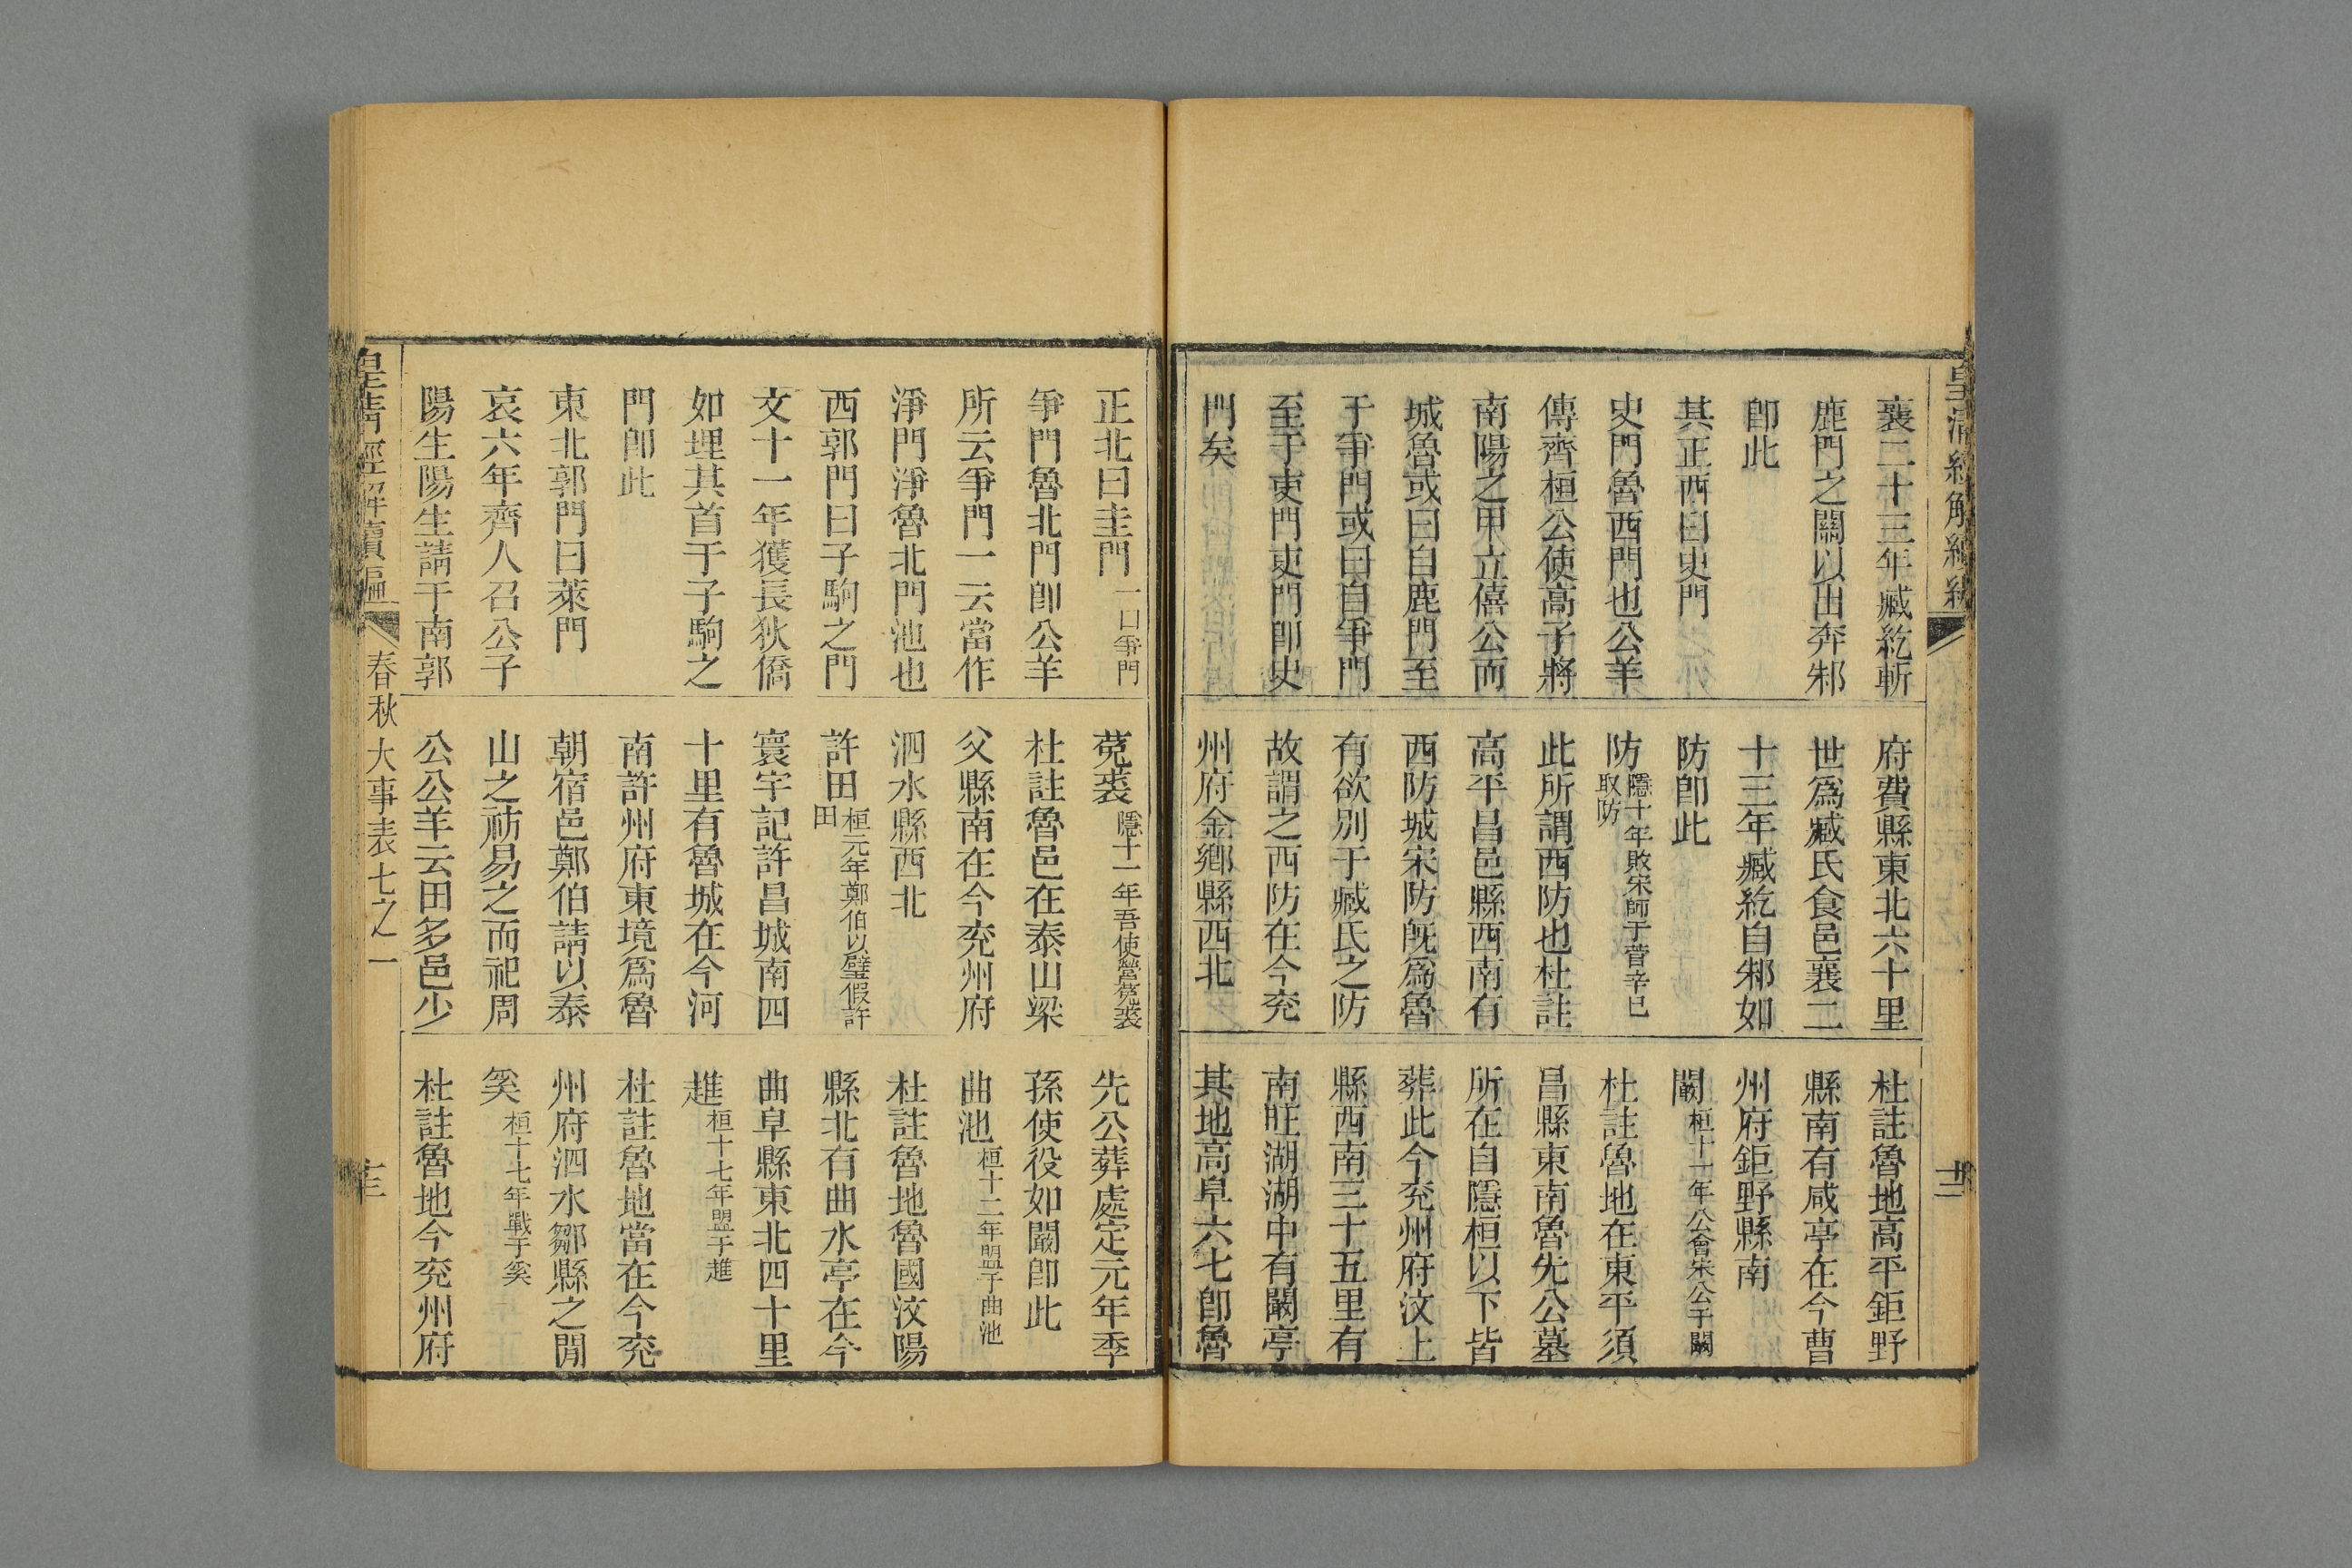 襄二十三年臧紇斬
鹿門之關以出奔邾
卽此
其正西曰史門
史門魯西門也公羊
傳齊桓公使高子將
南陽之甲立僖公而
城魯或曰自鹿門至
于爭門或曰自爭門
至于吏門吏門卽史
門矣
府費縣東北六十里
世爲臧氏食邑襄二
十三年臧紇自邾如
防卽此
防隱十年敗宋師于菅辛巳
取防
此所謂西防也杜註
高平昌邑縣西南有
西防城宋防旣爲魯
有欲別于臧氏之防
故謂之西防在今兖
州府金鄉縣西北
杜註魯地高平鉅野
縣南有咸亭在今曹
州府鉅野縣南
闞桓十一年公會宋公于闞
杜註魯地在東平須
昌縣東南魯先公墓
所在自隱桓以下皆
葬此今兖州府汶上
縣西南三十五里有
南旺湖湖中有闞亭
其地高阜六七卽魯
正北曰圭門一曰爭門
爭門魯北門卽公羊
所云爭門一云當作
淨門淨魯北門池也
西郭門曰子駒之門
文十一年獲長狄僑
如埋其首于子駒之
門卽此
東北郭門曰萊門
哀六年齊人召公子
陽生陽生請于南郭
菟裘隱十一年吾使營菟裘
杜註魯邑在泰山梁
父縣南在今兖州府
泗水縣西北
許田桓元年鄭伯以璧假許
田
寰宇記許昌城南四
十里有魯城在今河
南許州府東境爲魯
朝宿邑鄭伯請以泰
山之祊易之而祀周
公公羊云田多邑少
先公葬處定元年季
孫使役如闞卽此
曲池桓十二年盟于曲池
杜註魯地魯國汶陽
縣北有曲水亭在今
曲阜縣東北四十里
趡桓十七年盟于趡
杜註魯地當在今兖
州府泗水鄒縣之閒
奚桓十七年戰于奚
杜註魯地今兖州府
皇清經解續編
春秋大事表七之一
十三